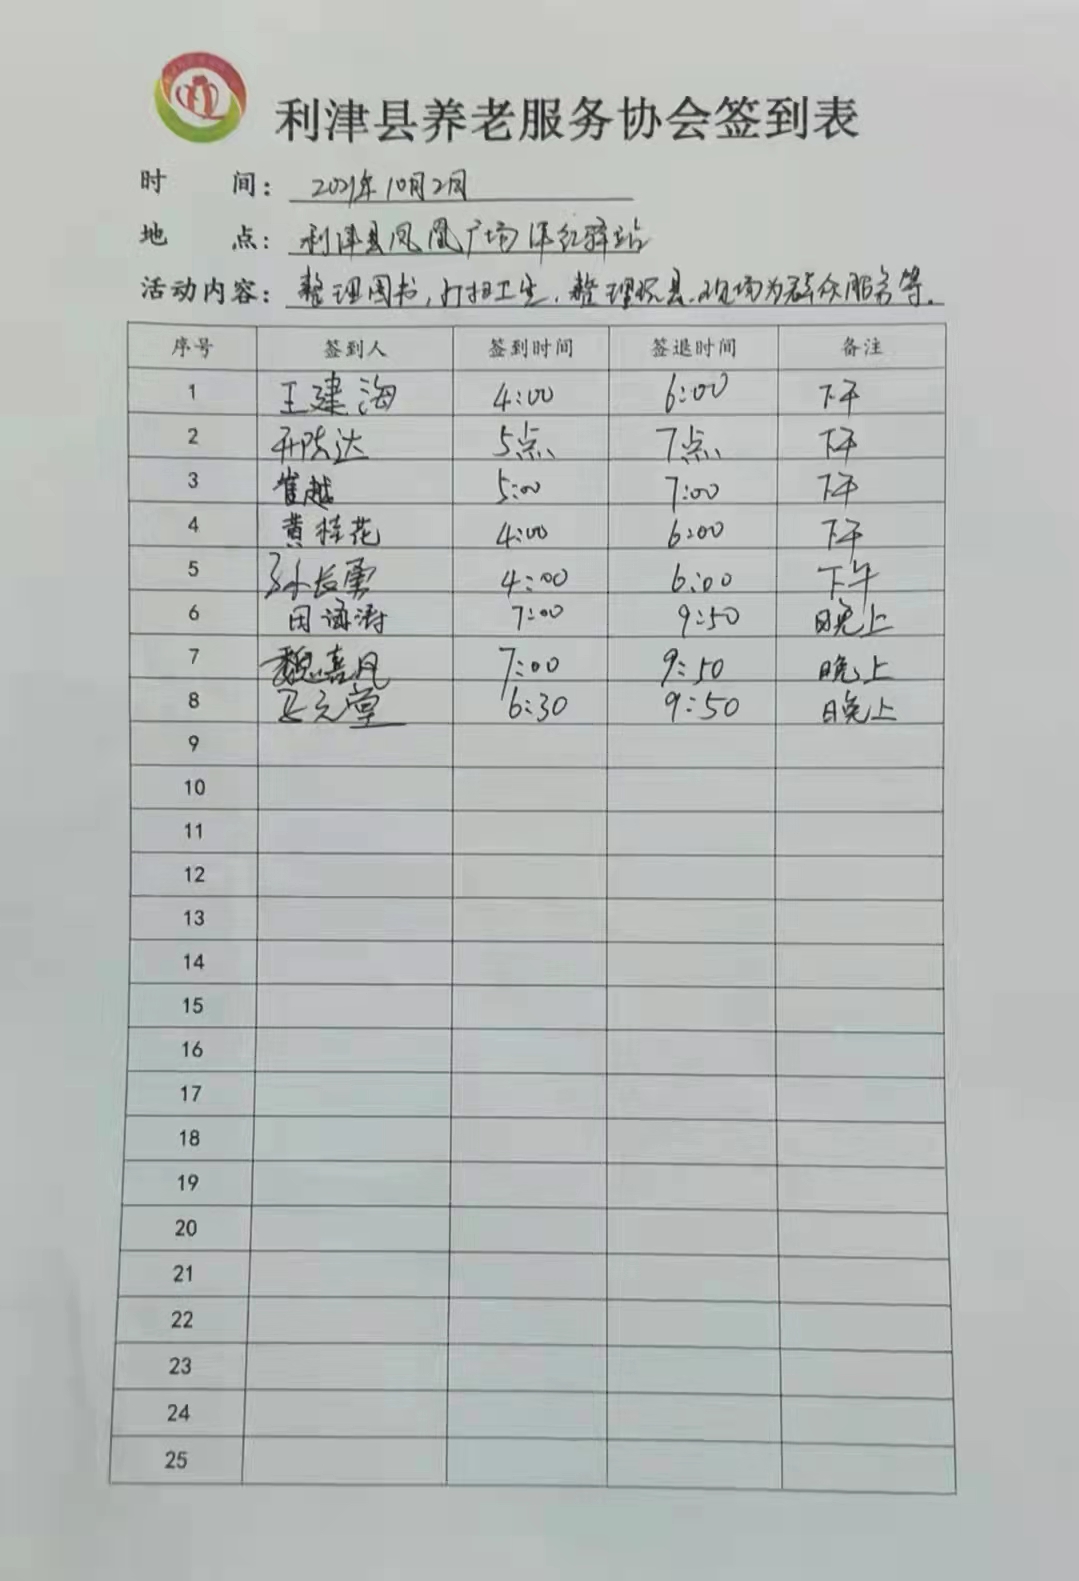 利津县养老服务协会签到表
时 间: 2021年10月2日
地 点: 利津县凤凰广场津红驿站
活动内容: 整理图书,打扫卫生,整理玩具、现场为群众服务等.
序号 签到人 签到时间 签退时间 备注
1 王建海 4:00 6:00 下午
2 5点 7点 下午
3 崔越 5:00 7:00 下午
4 黄桂花 4:00 6:00 下午
5 孙长勇 4:00 6:00 下午
6 田海涛 7:00 9:50 晚上
7 魏喜凤 7:00 9:50 晚上
8 6:30 9:50 晚上
9
10
11
12
13
14
15
16
17
18
19
20
21
22
23
24
25